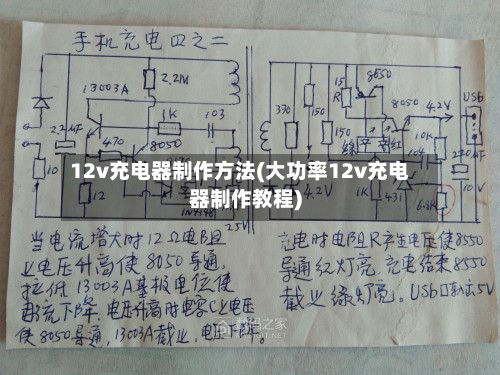 手机充电四之二
8550
15
R
USb
13003A
2.2M
8050
4.2V
1K
103
370
150
10K
2.2MF
150
104
470
8050
绿
红
12v充电器制作方法(大功率12v充电
器制作教程)
10
12
1N4148
4.2V
1K
431
6.8K
10V
25V
当电流增大时12Ω电阻
充电时电阻R产生电压使8550
上电压升高使8050导通,
导通红灯亮,充电结束8550
拉低13003A基极电位使
截止绿灯亮。USb口输出5V
电流下降,电压升高时电容C上电压
使8050导通,13003A截止,电压下降。
数码之家